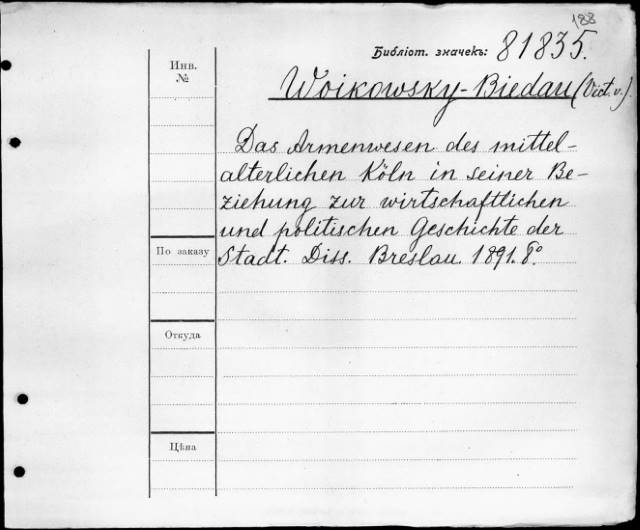 188
Библіот. значекъ: 81835.
Инв.
№
Woikowsky-Biedau (Vict. v.).
Das Armenwesen des mittel-
alterlichen Köln in seiner Be-
ziehung zur wirtschaftlichen
und politischen Geschichte der
Stadt. Diss. Breslau. 1891. 8°.
По заказу
Откуда
Цѣна